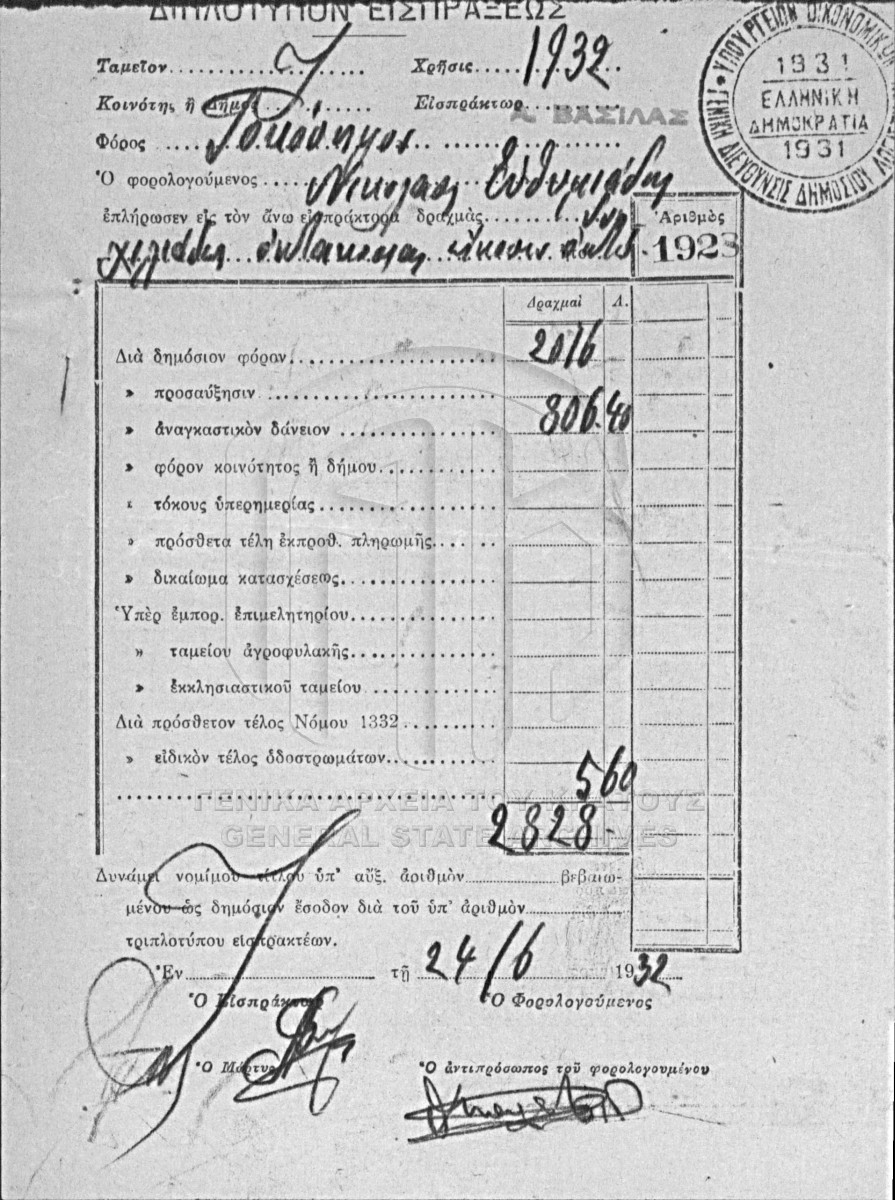 ΔΙΠΛΟΤΥΠΟΝ ΕΙΣΠΡΑΞΕΩΣ
Ταμεῖον
Χρῆσις 1932
Κοινότης ἢ Δῆμος
Εἰσπράκτωρ Α. ΒΑΣΙΛΑΣ
Φόρος
Ὁ φορολογούμενος Νικόλαος Εὐθυμιάδης
ἐπλήρωσεν εἰς τὸν ἄνω εἰσπράκτορα δραχμὰς δύο
χιλιάδες ὀκτακοσίας εἴκοσιν ὀκτὼ
Ἀριθμὸς
1923
ΥΠΟΥΡΓΕΙΟΝ ΟΙΚΟΝΟΜΙΚΩΝ
ΓΕΝΙΚΗ ΔΙΕΥΘΥΝΣΙΣ ΔΗΜΟΣΙΟΥ
1931
ΕΛΛΗΝΙΚΗ
ΔΗΜΟΚΡΑΤΙΑ
1931
Δραχμαὶ Λ.
Διὰ δημόσιον φόρον 2016
» προσαύξησιν
» ἀναγκαστικὸν δάνειον 806.40
» φόρον κοινότητος ἢ δήμου
» τόκους ὑπερημερίας
» πρόσθετα τέλη ἐκπροθ. πληρωμῆς
» δικαίωμα κατασχέσεως
Ὑπὲρ ἐμπορ. ἐπιμελητηρίου
» ταμείου ἀγροφυλακῆς
» ἐκκλησιαστικοῦ ταμείου
Διὰ πρόσθετον τέλος Νόμου 1332
» εἰδικὸν τέλος ὁδοστρωμάτων
5 60
ΓΕΝΙΚΑ ΑΡΧΕΙΑ ΤΟΥ ΚΡΑΤΟΥΣ
2828
GENERAL STATE ARCHIVES
Δυνάμει νομίμου τίτλου ὑπ' αὔξ. ἀριθμὸν βεβαιω-
μένου ὡς δημόσιον ἔσοδον διὰ τοῦ ὑπ' ἀριθμὸν
τριπλοτύπου εἰσπρακτέων.
Ἐν τῇ 24/6 1932
Ὁ Εἰσπράκτωρ Ὁ Φορολογούμενος
Ὁ Μάρτυς Ὁ ἀντιπρόσωπος τοῦ φορολογουμένου